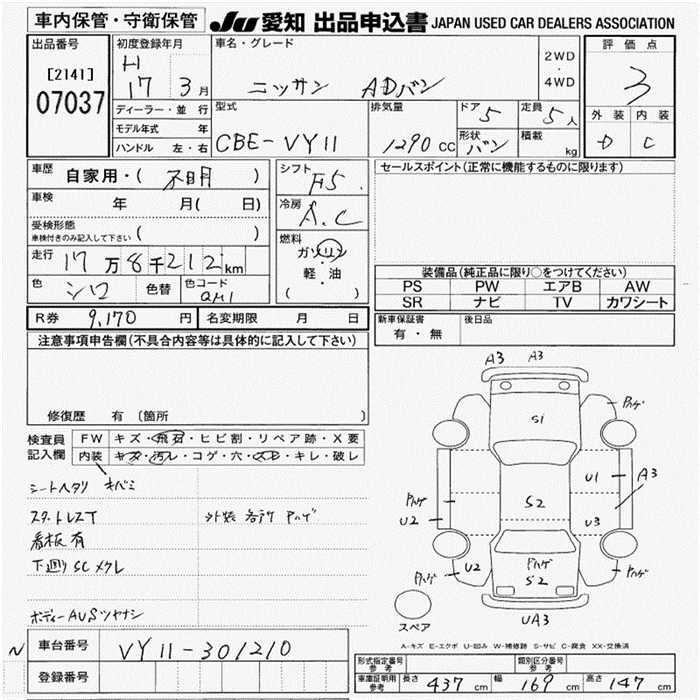 車内保管・守衛保管 JU 愛知 出品申込書 JAPAN USED CAR DEALERS ASSOCIATION
出品番号 初度登録年月 車名・グレード 評価点
[2141] H 17 3月 ニッサン ADバン 2WD ・ 4WD 3
07037 ディーラー・並行 型式 排気量 ドア 5 定員 5人 外装 内装
モデル年式 年 CBE-VY11 1290 cc 形状 バン 積載 kg D C
ハンドル 左・右
車歴 自家用・( 不明 ) シフト F5 セールスポイント(正常に機能するものに限ります)
車検 年 月( 日) 冷房 A.C
受検形態
車検付きのみ記入して下さい ( )
燃料 ガソリン ・ 軽・油 ( )
走行 17万8千212km 装備品(純正品に限り○をつけてください)
色 シロ 色替 色コード QM1 PS PW エアB AW
SR ナビ TV カワシート
R券 9,170 円 名変期限 月 日 新車保証書 有・無 後日品
注意事項申告欄(不具合内容等は具体的に記入して下さい)
修復歴 有 (箇所 )
検査員 FW キズ・飛石・ヒビ割・リペア跡・X要
記入欄 内装 キズ・汚レ・コゲ・穴・スレ・キレ・破レ
シートヘタリ キバミ
スタートレスT 外装 各所 Pハゲ
看板有
下廻りSCメクレ
ボディーAUSツヤナシ
A3 A3
Pハゲ Pハゲ
S1
U1 A3
Pハゲ S2
U2 U3
Pハゲ U2 Pハゲ S2 Pハゲ
UA3
スペア
A-キズ E-エクボ U-凹み W-補修跡 S-サビ C-腐食 XX-交換済
N 車台番号 VY11-301210
登録番号
形式指定番号 参考 類別区分番号 参考
車庫証明用 参考 長さ 437 cm 幅 169 cm 高さ 147 cm